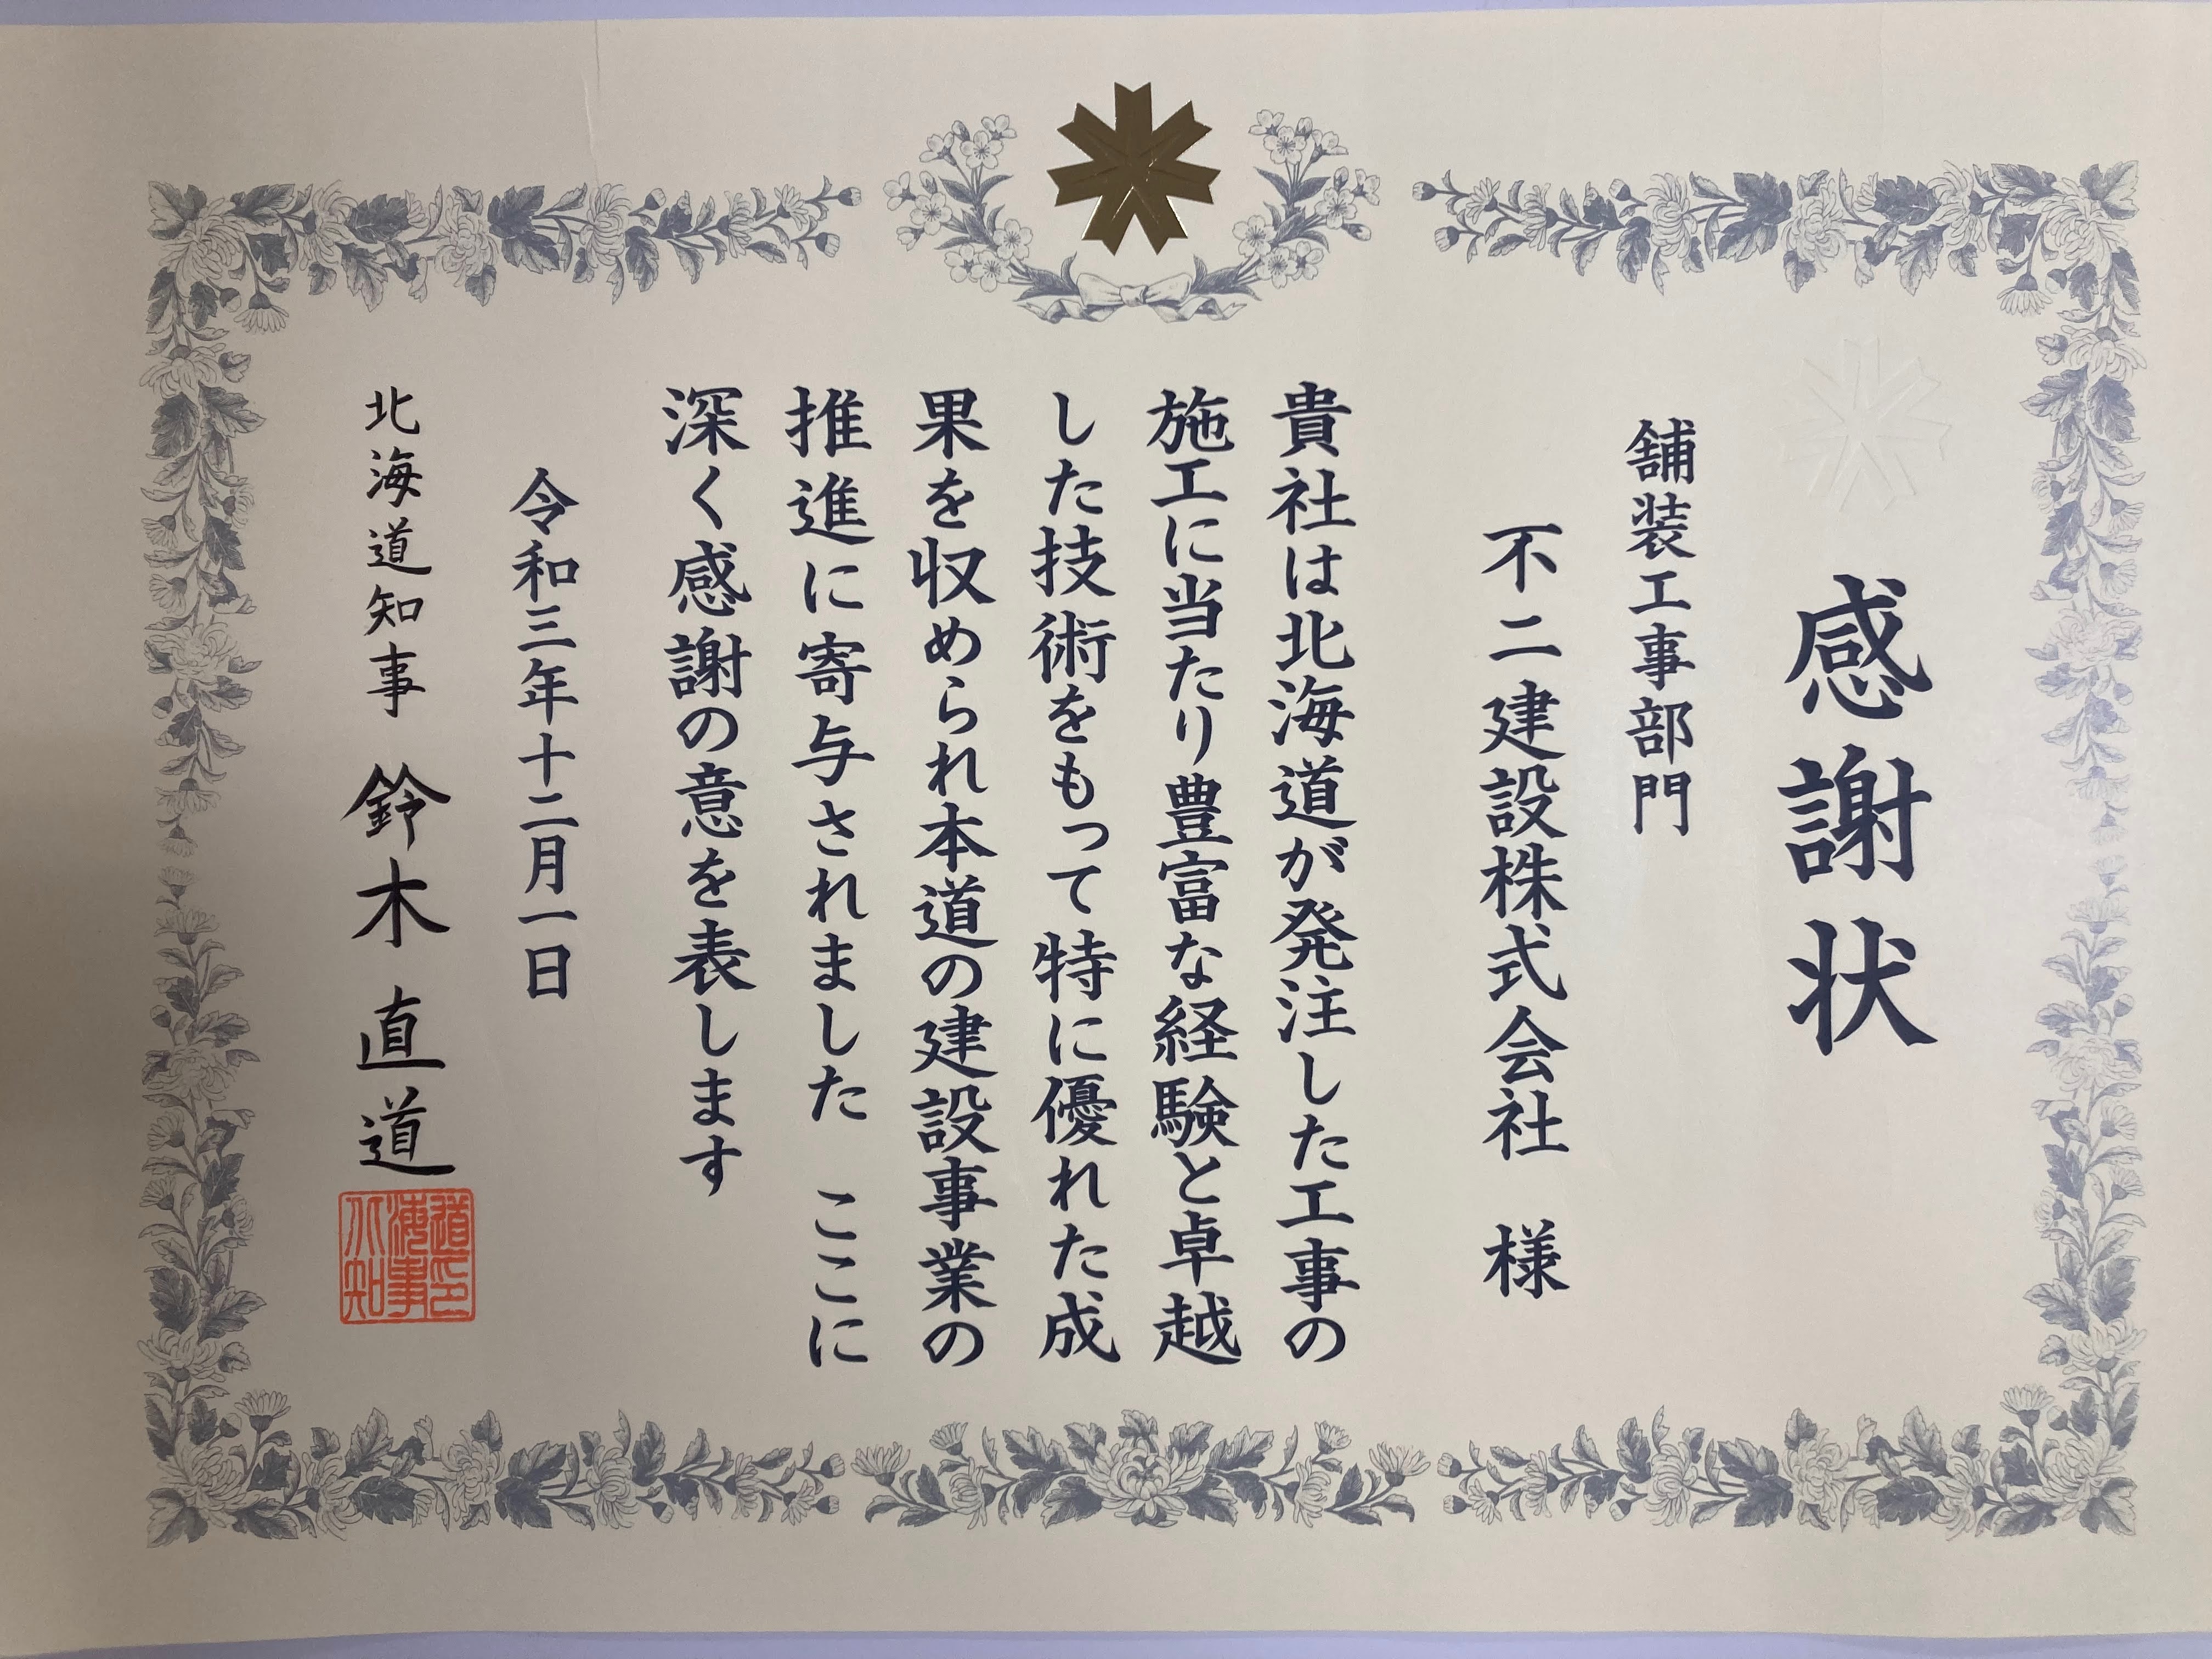 感謝状
舗装工事部門
不二建設株式会社 様
貴社は北海道が発注した工事の
施工に当たり豊富な経験と卓越
した技術をもって特に優れた成
果を収められ本道の建設事業の
推進に寄与されました ここに
深く感謝の意を表します
令和三年十二月一日
北海道知事 鈴木直道
北海道知事印